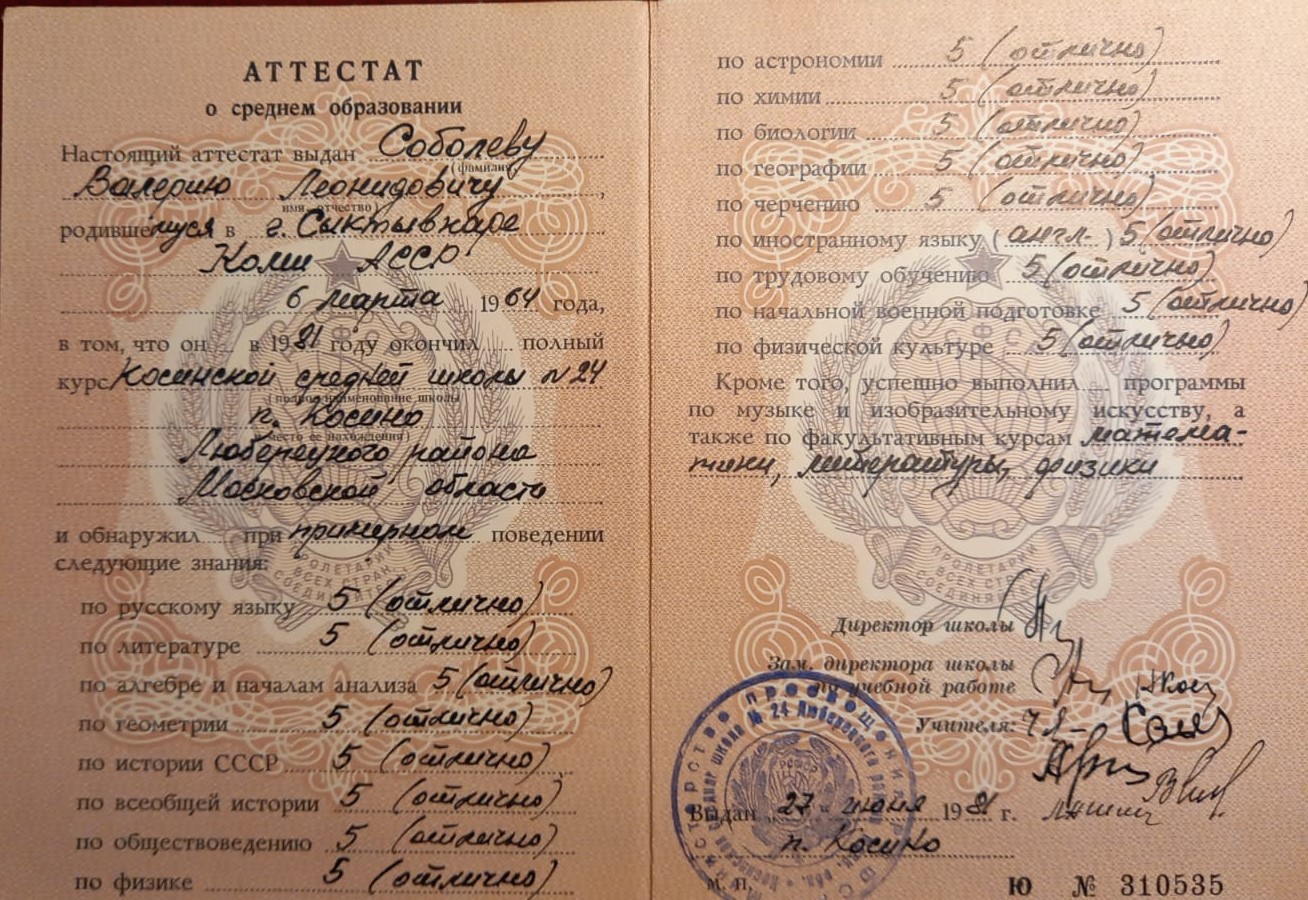 АТТЕСТАТ
о среднем образовании
Настоящий аттестат выдан Соболеву
(фамилия,
Валерию Леонидовичу,
имя, отчество)
родившемуся в г. Сыктывкаре
Коми АССР
6 марта 1964 года,
в том, что он в 1981 году окончил полный
курс Косинской средней школы №24
(полное наименование школы
п. Косино
место ее нахождения)
Люберецкого района
Московской области
и обнаружил при примерном поведении
следующие знания:
по русскому языку 5 (отлично)
по литературе 5 (отлично)
по алгебре и началам анализа 5 (отлично)
по геометрии 5 (отлично)
по истории СССР 5 (отлично)
по всеобщей истории 5 (отлично)
по обществоведению 5 (отлично)
по физике 5 (отлично)
по астрономии 5 (отлично)
по химии 5 (отлично)
по биологии 5 (отлично)
по географии 5 (отлично)
по черчению 5 (отлично)
по иностранному языку (англ.) 5 (отлично)
по трудовому обучению 5 (отлично)
по начальной военной подготовке 5 (отлично)
по физической культуре 5 (отлично)
Кроме того, успешно выполнил программы
по музыке и изобразительному искусству, а
также по факультативным курсам матема-
тики, литературы, физики
ПРОЛЕТАРИИ
ВСЕХ СТРАН,
СОЕДИНЯЙТЕСЬ
Директор школы
Зам. директора школы
по учебной работе
Учителя:
Выдан 27 июня 1981 г.
п. Косино
М. П.
Ю № 310535